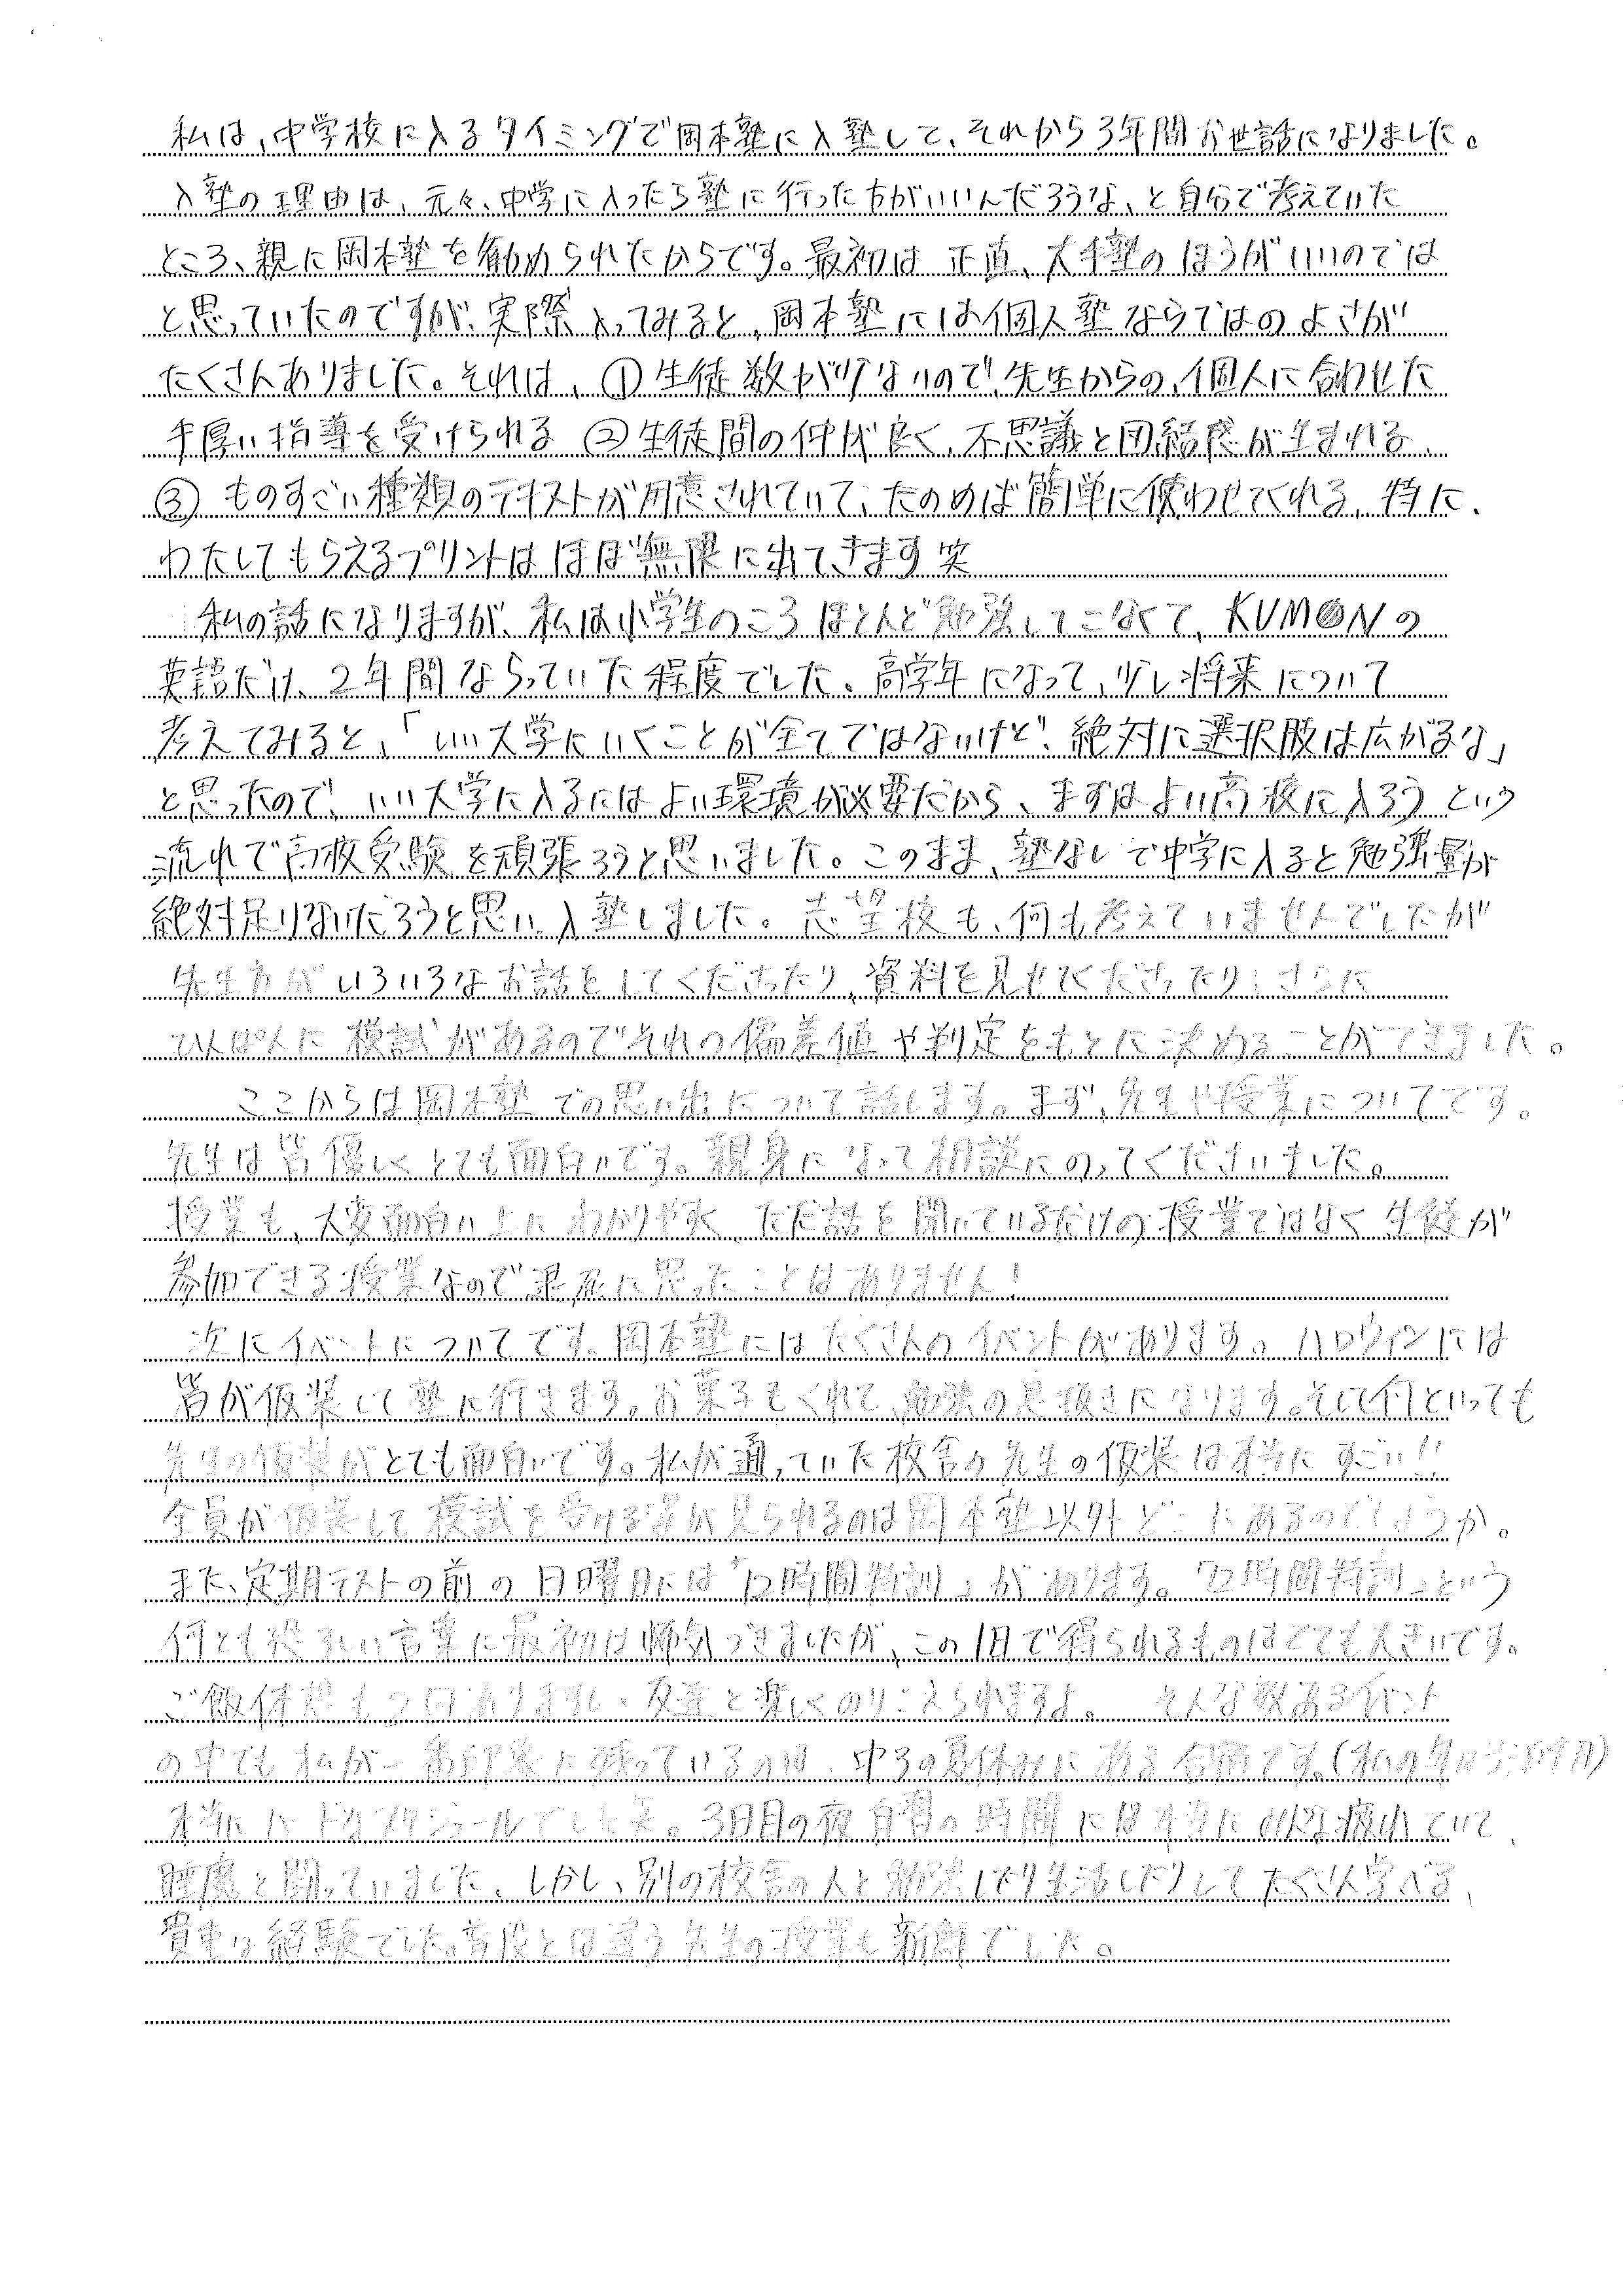 私は、中学校に入るタイミングで岡本塾に入塾して、それから3年間お世話になりました。
入塾の理由は、元々、中学に入ったら塾に行った方がいいんだろうな、と自分で考えていた
ところ、親に岡本塾を勧められたからです。最初は正直、大手塾のほうがいいのでは
と思っていたのですが、実際入ってみると、岡本塾には個人塾ならではのよさが
たくさんありました。それは、①生徒数が少ないので、先生からの、個人に合わせた
手厚い指導を受けられる ②生徒間の仲が良く、不思議と団結感が生まれる、
③ものすごい種類のテキストが用意されていて、たのめば簡単に使わせてくれる、特に、
わたしてもらえるプリントはほぼ無限に出てきます笑
私の話になりますが、私は小学生のころほとんど勉強してこなくて、KUMONの
英語だけ、2年間ならっていた程度でした。高学年になって、少し将来について
考えてみると、「いい大学にいくことが全てではないけど、絶対に選択肢は広がるな」
と思ったので、いい大学に入るにはよい環境が必要だから、まずはよい高校に入ろうという
流れで高校受験を頑張ろうと思いました。このまま、塾なしで中学に入ると勉強量が
絶対足りないだろうと思い、入塾しました。志望校も、何も考えていませんでしたが
先生方がいろいろなお話をしてくださったり、資料を見せてくださったり、さらに
ひんぱんに模試があるのでそれの偏差値や判定をもとに決めることができました。
ここからは岡本塾での思い出について話します。まず、先生や授業についてです。
先生は皆優しくとても面白いです。親身になって相談にのってくださいました。
授業も、大変面白い上にわかりやすく、ただ話を聞いているだけの授業ではなく生徒が
参加できる授業なので退屈に思ったことはありません!
次にイベントについてです。岡本塾にはたくさんのイベントがあります。ハロウィンには
皆が仮装して塾に行きます。お菓子もくれて、勉強の息抜きになります。そして何といっても
先生の仮装がとても面白いです。私が通っていた校舎の先生の仮装は本当にすごい!!
全員が仮装して模試を受ける姿が見られるのは岡本塾以外どこにあるのでしょうか。
また、定期テストの前の日曜日には「12時間特訓」があります。「12時間特訓」という
何とも恐ろしい言葉に最初は怖気づきましたが、この1日で得られるものはとても大きいです。
ご飯休憩も2回ありますし、友達と楽しくのりこえられますよ。そんな数あるイベント
の中でも私が一番印象に残っているのは、中3の夏休みにある合宿です。
本当にハードなスケジュールでした笑。3日目の夜自習の時間には本当にみんな疲れていて、
睡魔と闘っていました。しかし、別の校舎の人と勉強したり生活したりしてたくさん学べる、
貴重な経験でした。普段とは違う先生の授業も新鮮でした。